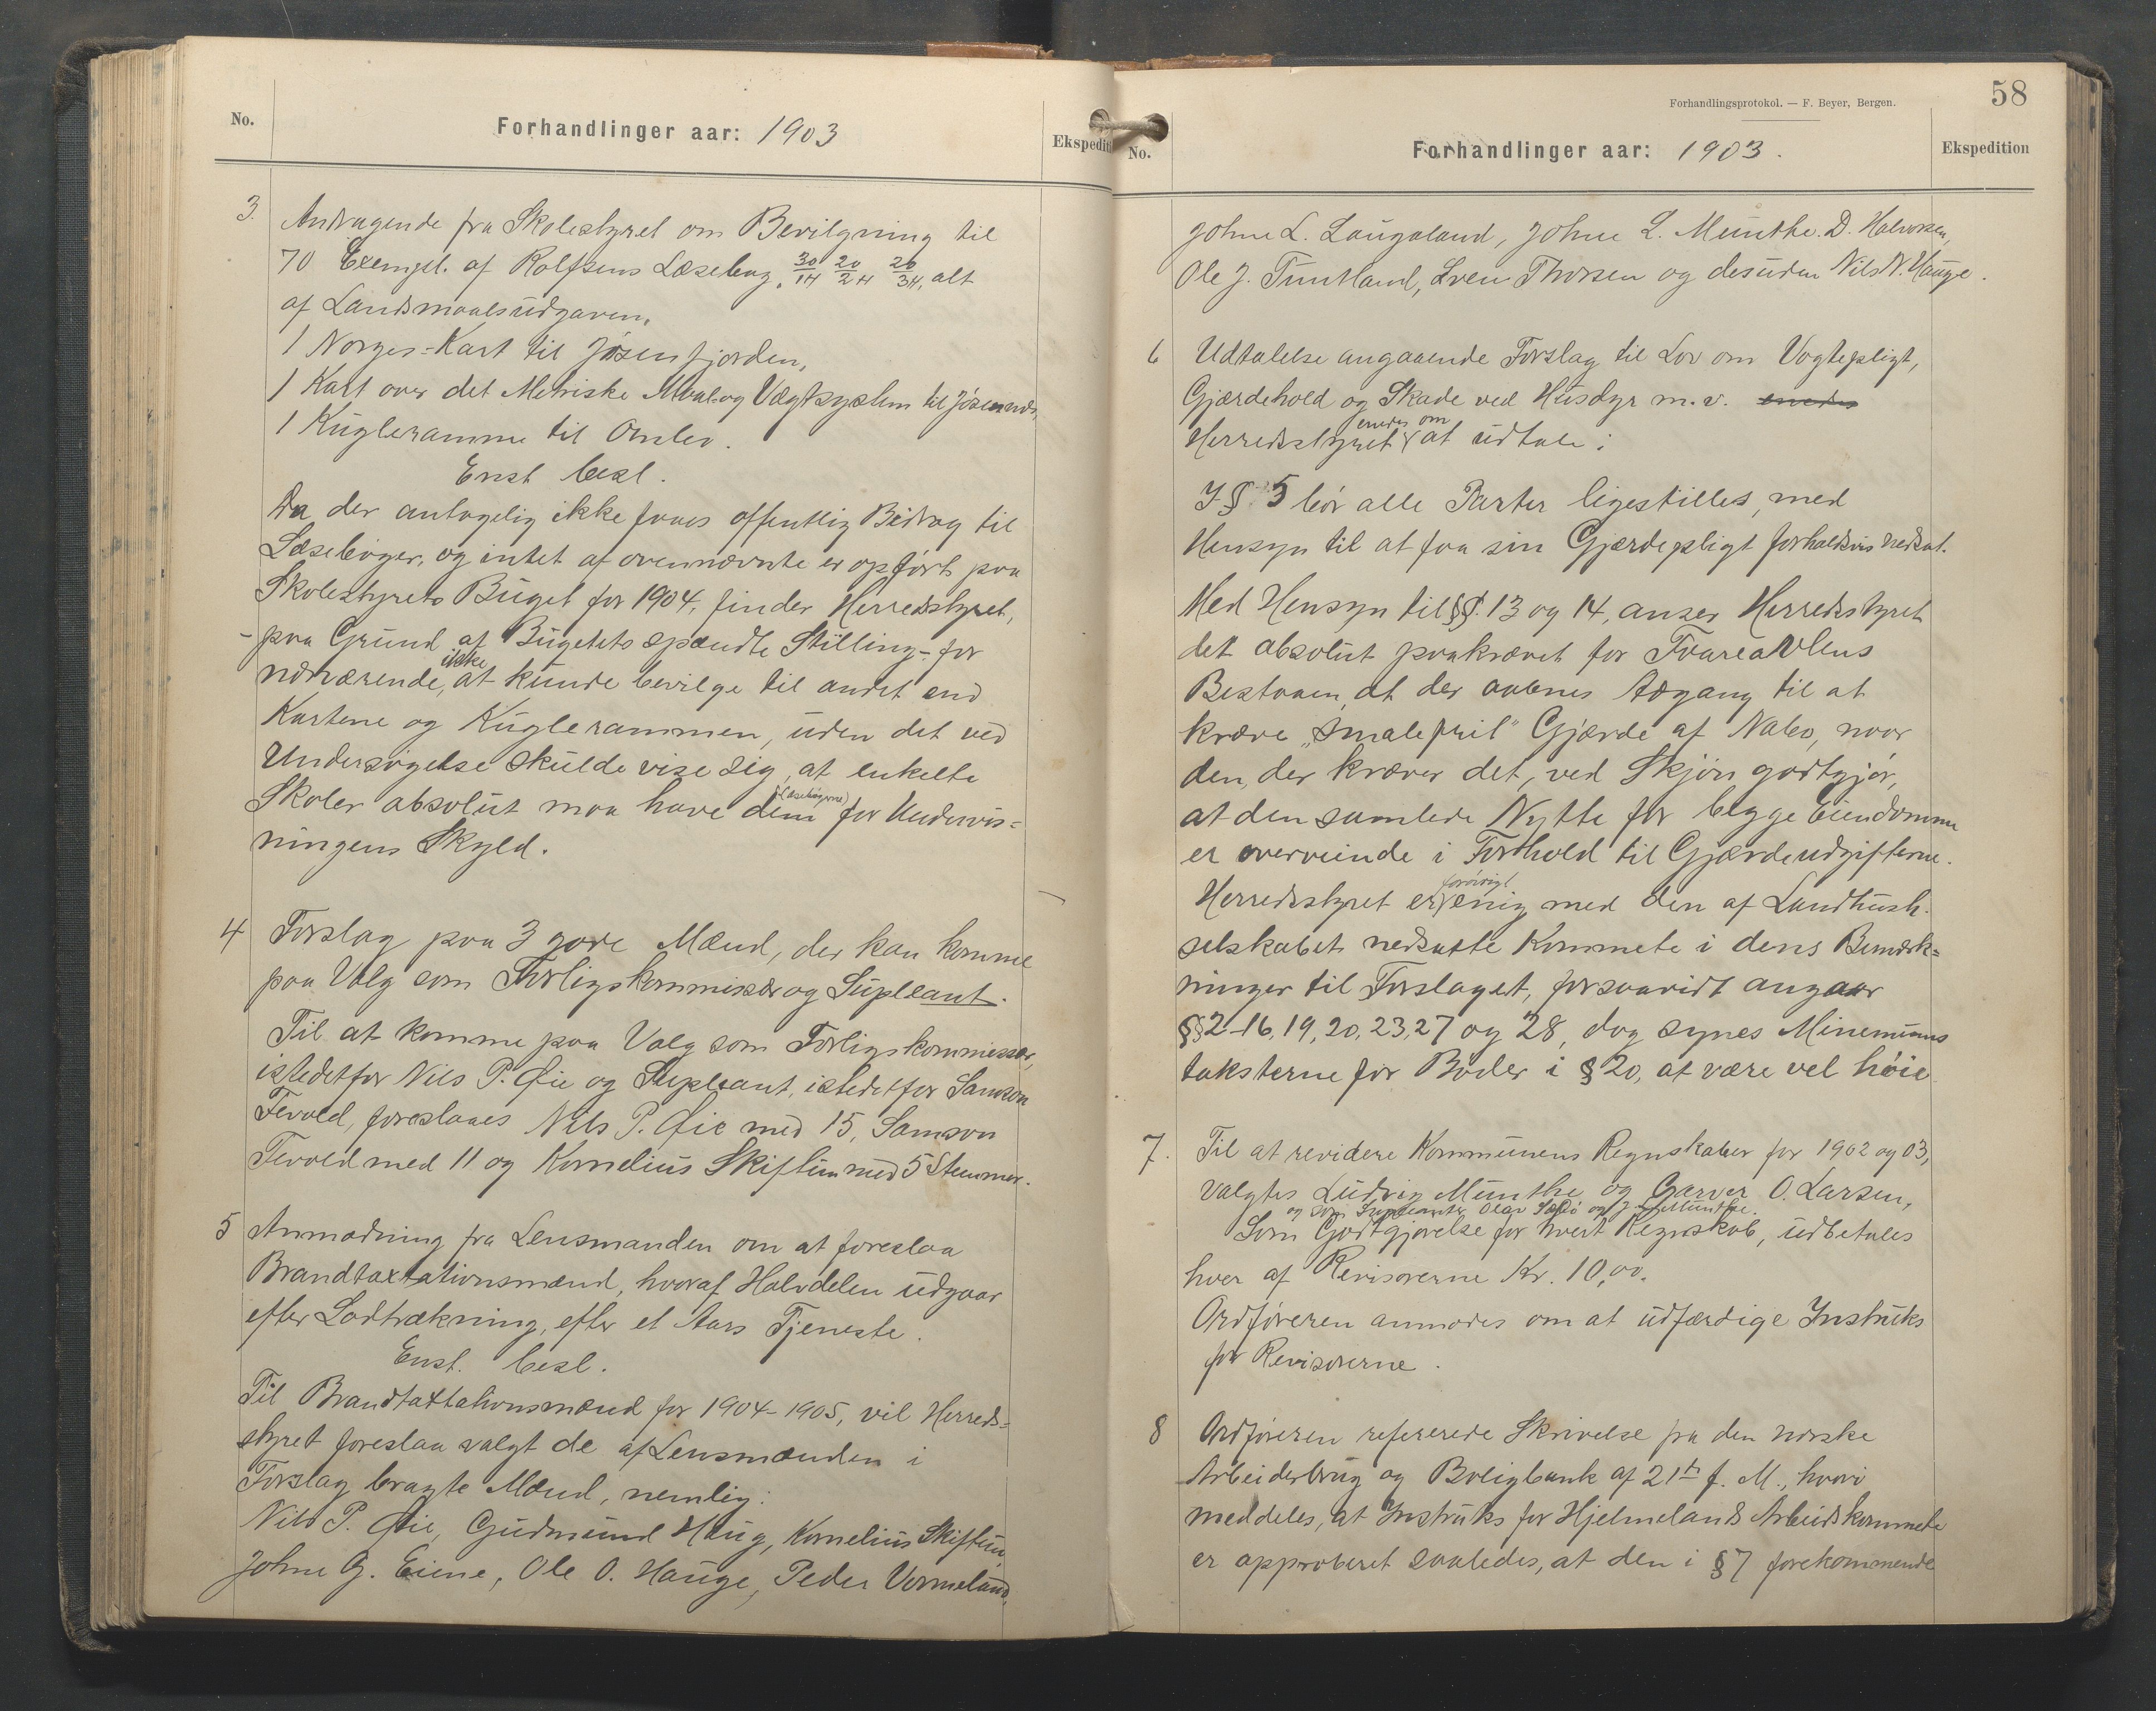 No.
Forhandlinger aar: 1903
Ekspediti
3. Andragende fra Skolestyret om Bevilgning til
70 Exempl. af Rolfsens Læsebog, 30/1H 20/2H 20/3H, alt
af Landsmaalsudgaven,
1 Norges-Kart til Jøsenfjorden,
1 Kart over det Metriske Maal-og Vægtsystem til Jøsenund,
1 Kugleramme til Omlev.
Enst besl.
Da der antagelig ikke faaes offentlig Bidrag til
Læsebøger, og intet af ovennævnte er opført paa
Skolestyrets Buget for 1904, finder Herredsstyret,
- paa Grund af Bugettets spændte Stilling - for
nærværende, ikke at kunde bevilge til andet end
Kartene og Kuglerammen, uden det ved
Undersøgelse skulde vise sig, at enkelte
Skoler absolut maa have dem (Læsebøgerne) for Undervis=
ningens Skyld.
4 Forslag paa 3 gode Mænd, der kan komme
paa Valg som Forligskommissær og Supleant.
Til at komme paa Valg som Forligskommissær,
istedetfor Nils P. Øie og Supleant, istedetfor Samson
Tevold, foreslaaes Nils P. Øie med 15, Samson
Tevold med 11 og Kornelius Skiftun med 5 Stemmer.
5 Anmodning fra Lensmanden om at foreslaa
Brandtaxtationsmænd, hvoraf Halvdelen udgaar
efter Lodtrækning, efter et Aars Tjeneste.
Enst. besl.
Til Brandtaxtationsmænd for 1904-1905, vil Herreds=
styret foreslaa valgt de af Lensmanden i
Forslag bragte Mænd, nemlig:
Nils P. Øie, Gudmund Haug, Kornelius Skiftun,
Johne G. Eiene, Ole O. Hauge, Peder Vormeland,
58
Forhandlingsprotokol. — F. Beyer, Bergen.
No.
Forhandlinger aar: 1903.
Ekspedition
Johne L. Laugaland, Johne L. Munthe. D. Halvorsen,
Ole J. Tuntland, Sven Thorsen og desuden Nils N. Hauge.
6 Udtalelse angaaende Forslag til Lov om Vogtepligt,
Gjærdehold og Skade ved Husdyr m.v. enedes
Herredsstyret enedes om at udtale:
I § 5 bør alle Parter ligestilles, med
Hensyn til at faa sin Gjærdepligt forholdsvis nedsat.
Med Hensyn til §§. 13 og 14, anser Herredsstyret
det absolut paakrævet for Faareavlens
Bestaaen, at der aabnes Adgang til at
kræve „smalefrit" Gjærde af Nabo, naar
den, der kræver det, ved Skjøn godtgjør,
at den samlede Nytte for begge Eiendomme
er overveiende i Forhold til Gjærdeudgifterne.
Herredsstyret er forøvrigt enig med den af Landhush.
selskabet nedsatte Kommete i dens Bemærk=
ninger til Forslaget, forsaavidt angaar
§§ 2-16, 19, 20, 23, 27 og 28, dog synes Minemums
taksterne for Bøder i § 20, at være vel høie
7. Til at revidere Kommunens Regnskaber for 1902 og 03,
valgtes Ludvig Munthe og Garver O. Larsen,
og som Supleanter Olav Sedø og J. Munthe.
Som Godtgjørelse for hvert Regnskab, udbetales
hver af Revisorerne Kr. 10,00.
Ordføreren anmodes om at udfærdige Instruks
for Revisorerne.
8 Ordføreren refererede Skrivelse fra den norske
Arbeiderbrug og Boligbank af 21de f. M., hvori
meddeles, at Instruks for Hjelmelands Arbeidskommete
er approberet saaledes, at den i § 7 forekommende